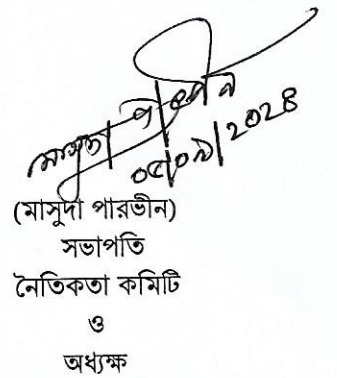 মাসুদা পারভীন
০৫/০৯/২০২৪
(মাসুদা পারভীন)
সভাপতি
নৈতিকতা কমিটি
ও
অধ্যক্ষ